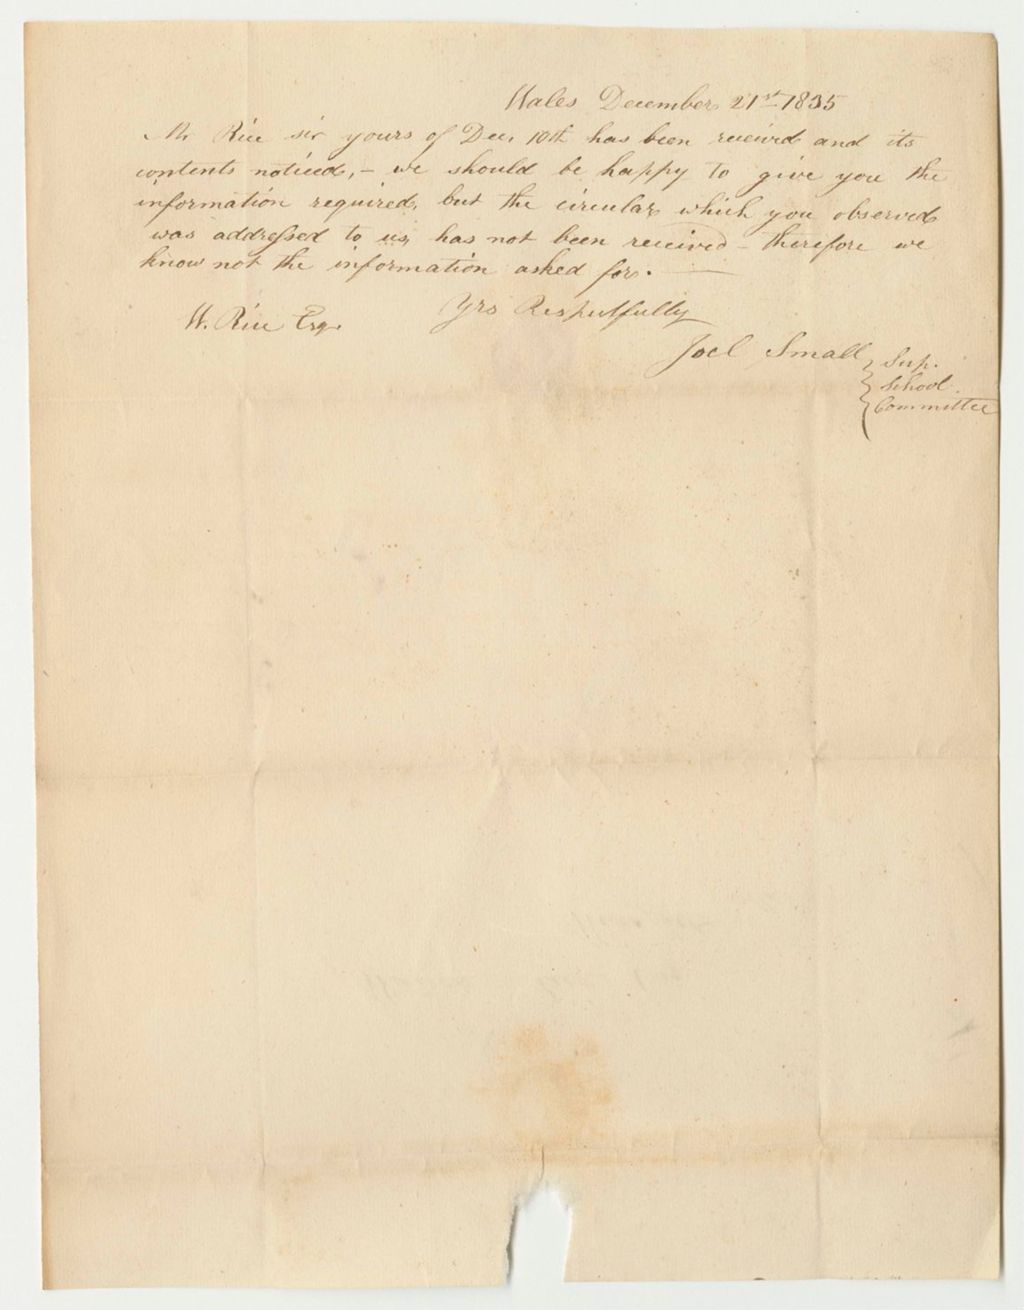 Wales December 21st 1835
Mr Rice sir yours of Dec. 10th has been received and its
contents noticed, - we should be happy to give you the
information required, but the circular which you observed
was addressed to us, has not been received - therefore we
know not the information asked for.
Yrs Respectfully
W. Rice Esq.
Joel Small } Sup.
School
Committee